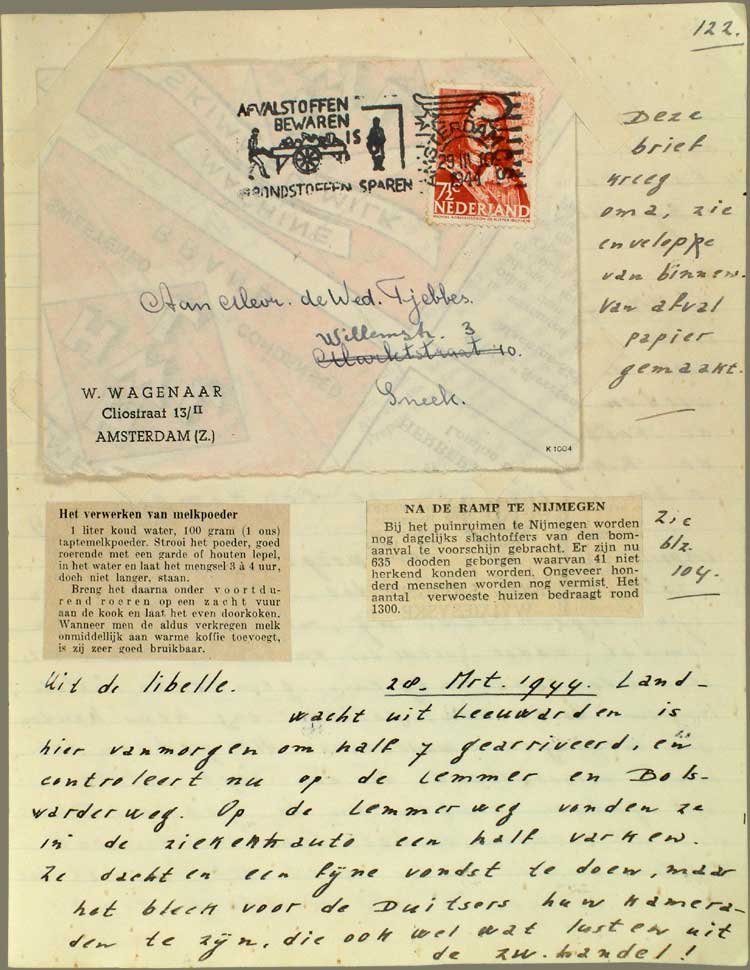 122.
AFVALSTOFFEN
BEWAREN
IS
GRONDSTOFFEN SPAREN
AMSTERDAM
29 III
1944
7½
NEDERLAND
Deze
brief
kreeg
oma, zie
enveloppe
van binnen.
Van afval
papier
gemaakt.
Aan Mevr. de Wed. Tjebbes.
Willemstr. 3
Marktstraat 10.
Sneek.
W. WAGENAAR
Cliostraat 13/II
AMSTERDAM (Z.)
K 1004
Het verwerken van melkpoeder
1 liter koud water, 100 gram (1 ons)
taptemelkpoeder. Strooi het poeder, goed
roerende met een garde of houten lepel,
in het water en laat het mengsel 3 à 4 uur,
doch niet langer, staan.
Breng het daarna onder voortdu-
rend roeren op een zacht vuur
aan de kook en laat het even doorkoken.
Wanneer men de aldus verkregen melk
onmiddellijk aan warme koffie toevoegt,
is zij zeer goed bruikbaar.
NA DE RAMP TE NIJMEGEN
Bij het puinruimen te Nijmegen worden
nog dagelijks slachtoffers van den bom-
aanval te voorschijn gebracht. Er zijn nu
635 dooden geborgen waarvan 41 niet
herkend konden worden. Ongeveer hon-
derd menschen worden nog vermist. Het
aantal verwoeste huizen bedraagt rond
1300.
Zie
blz.
104.
Uit de libelle.
28. Mrt. 1944. Land-
wacht uit Leeuwarden is
hier vanmorgen om half 7 gearriveerd, en
controleert nu op de Lemmer en Bols-
warderweg. Op de Lemmerweg vonden ze
in de ziekenauto een half varken.
Ze dachten een fijne vondst te doen, maar
het bleek voor de Duitsers hun kamera-
den te zijn, die ook wel wat lusten uit
de zw. handel!